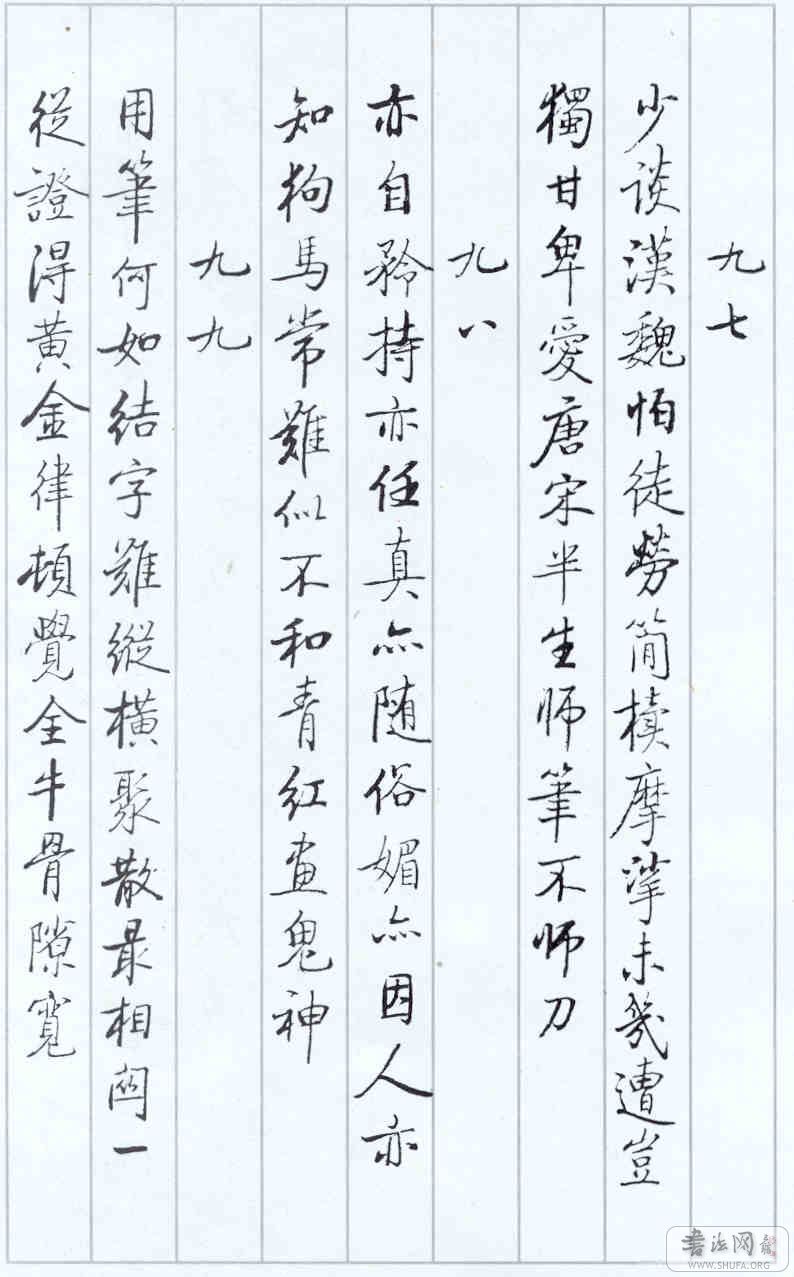 九七
少談漢魏怕徒勞簡櫝摩挲未幾遭豈
獨甘卑愛唐宋半生师筆不师刀
九八
亦自矜持亦任真亦随俗媚亦因人亦
知狗馬常難似不和青紅畫鬼神
九九
用筆何如結字難縱橫聚散最相關一
從證得黃金律頓覺全牛骨隙寬
書法网
WWW.SHUFA.ORG